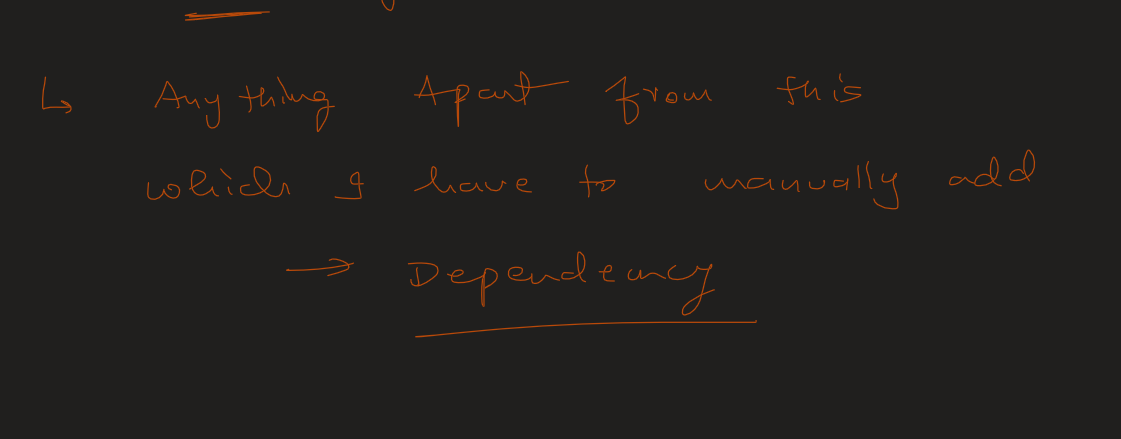 ↳ Anything Apart from this
which I have to manually add
→ Dependency